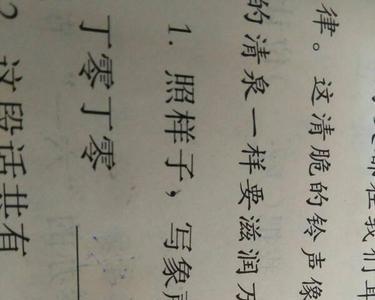 在我们耳
律。这清脆的铃声像
的清泉一样要滋润万
1. 照样子，写象声
丁零丁零
2 这段话共有